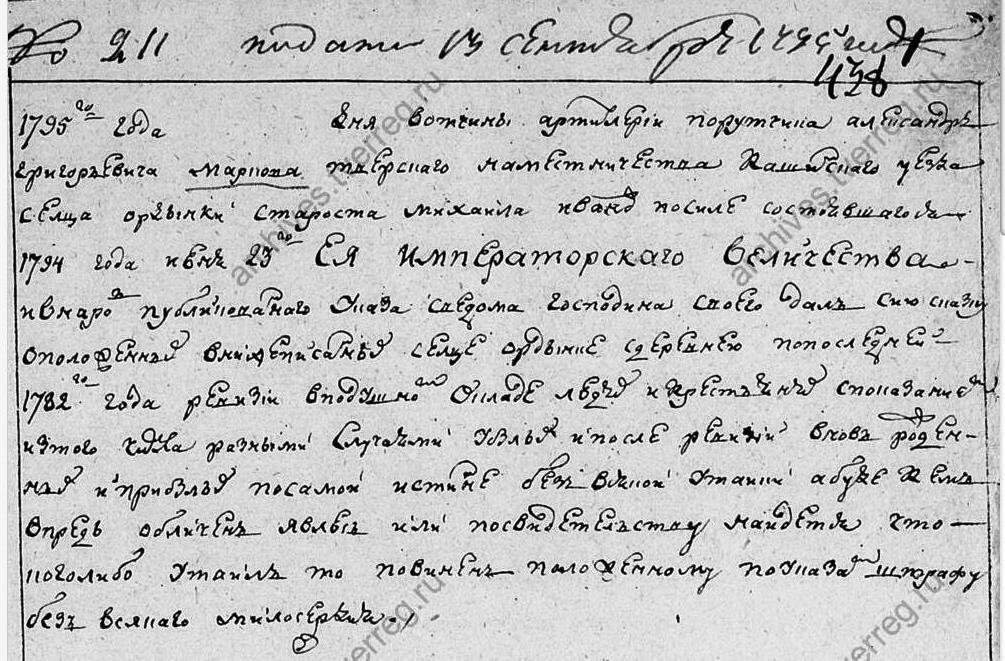 No 211 подана 13 сентебря 1795 году
438
1795го года дня вотчины артилерїи порутчика александръ
григорьевича маркова тверскаго наместничества Кашинскаго уезда
селца ордынки староста михаила ивановъ посиле состоявшагося
1794 года июня 23го ЕЯ ИМПЕРАТОРСКАГО ВЕЛИЧЕСТВА
ивнаро публикованаго Указа сведома господина своего далъ сию сказку
оположенныхъ внижеписанныхъ селце ордынке здеревнею попоследней
1782го года ревизїи вподушномъ Окладе людехъ и крестьянехъ споказаниемъ
изтого числа разными случаями убылыхъ ипосле ревизїи вновь рожден-
ныхъ и прибылыхъ посамой истинне безъ всякой Утайки абуде кемъ
впредь обличенъ явлюсь или посвидетельству найдется что
коголибо Утаилъ то повиненъ положенному поУказамъ штрафу
безъ всякаго милосердия